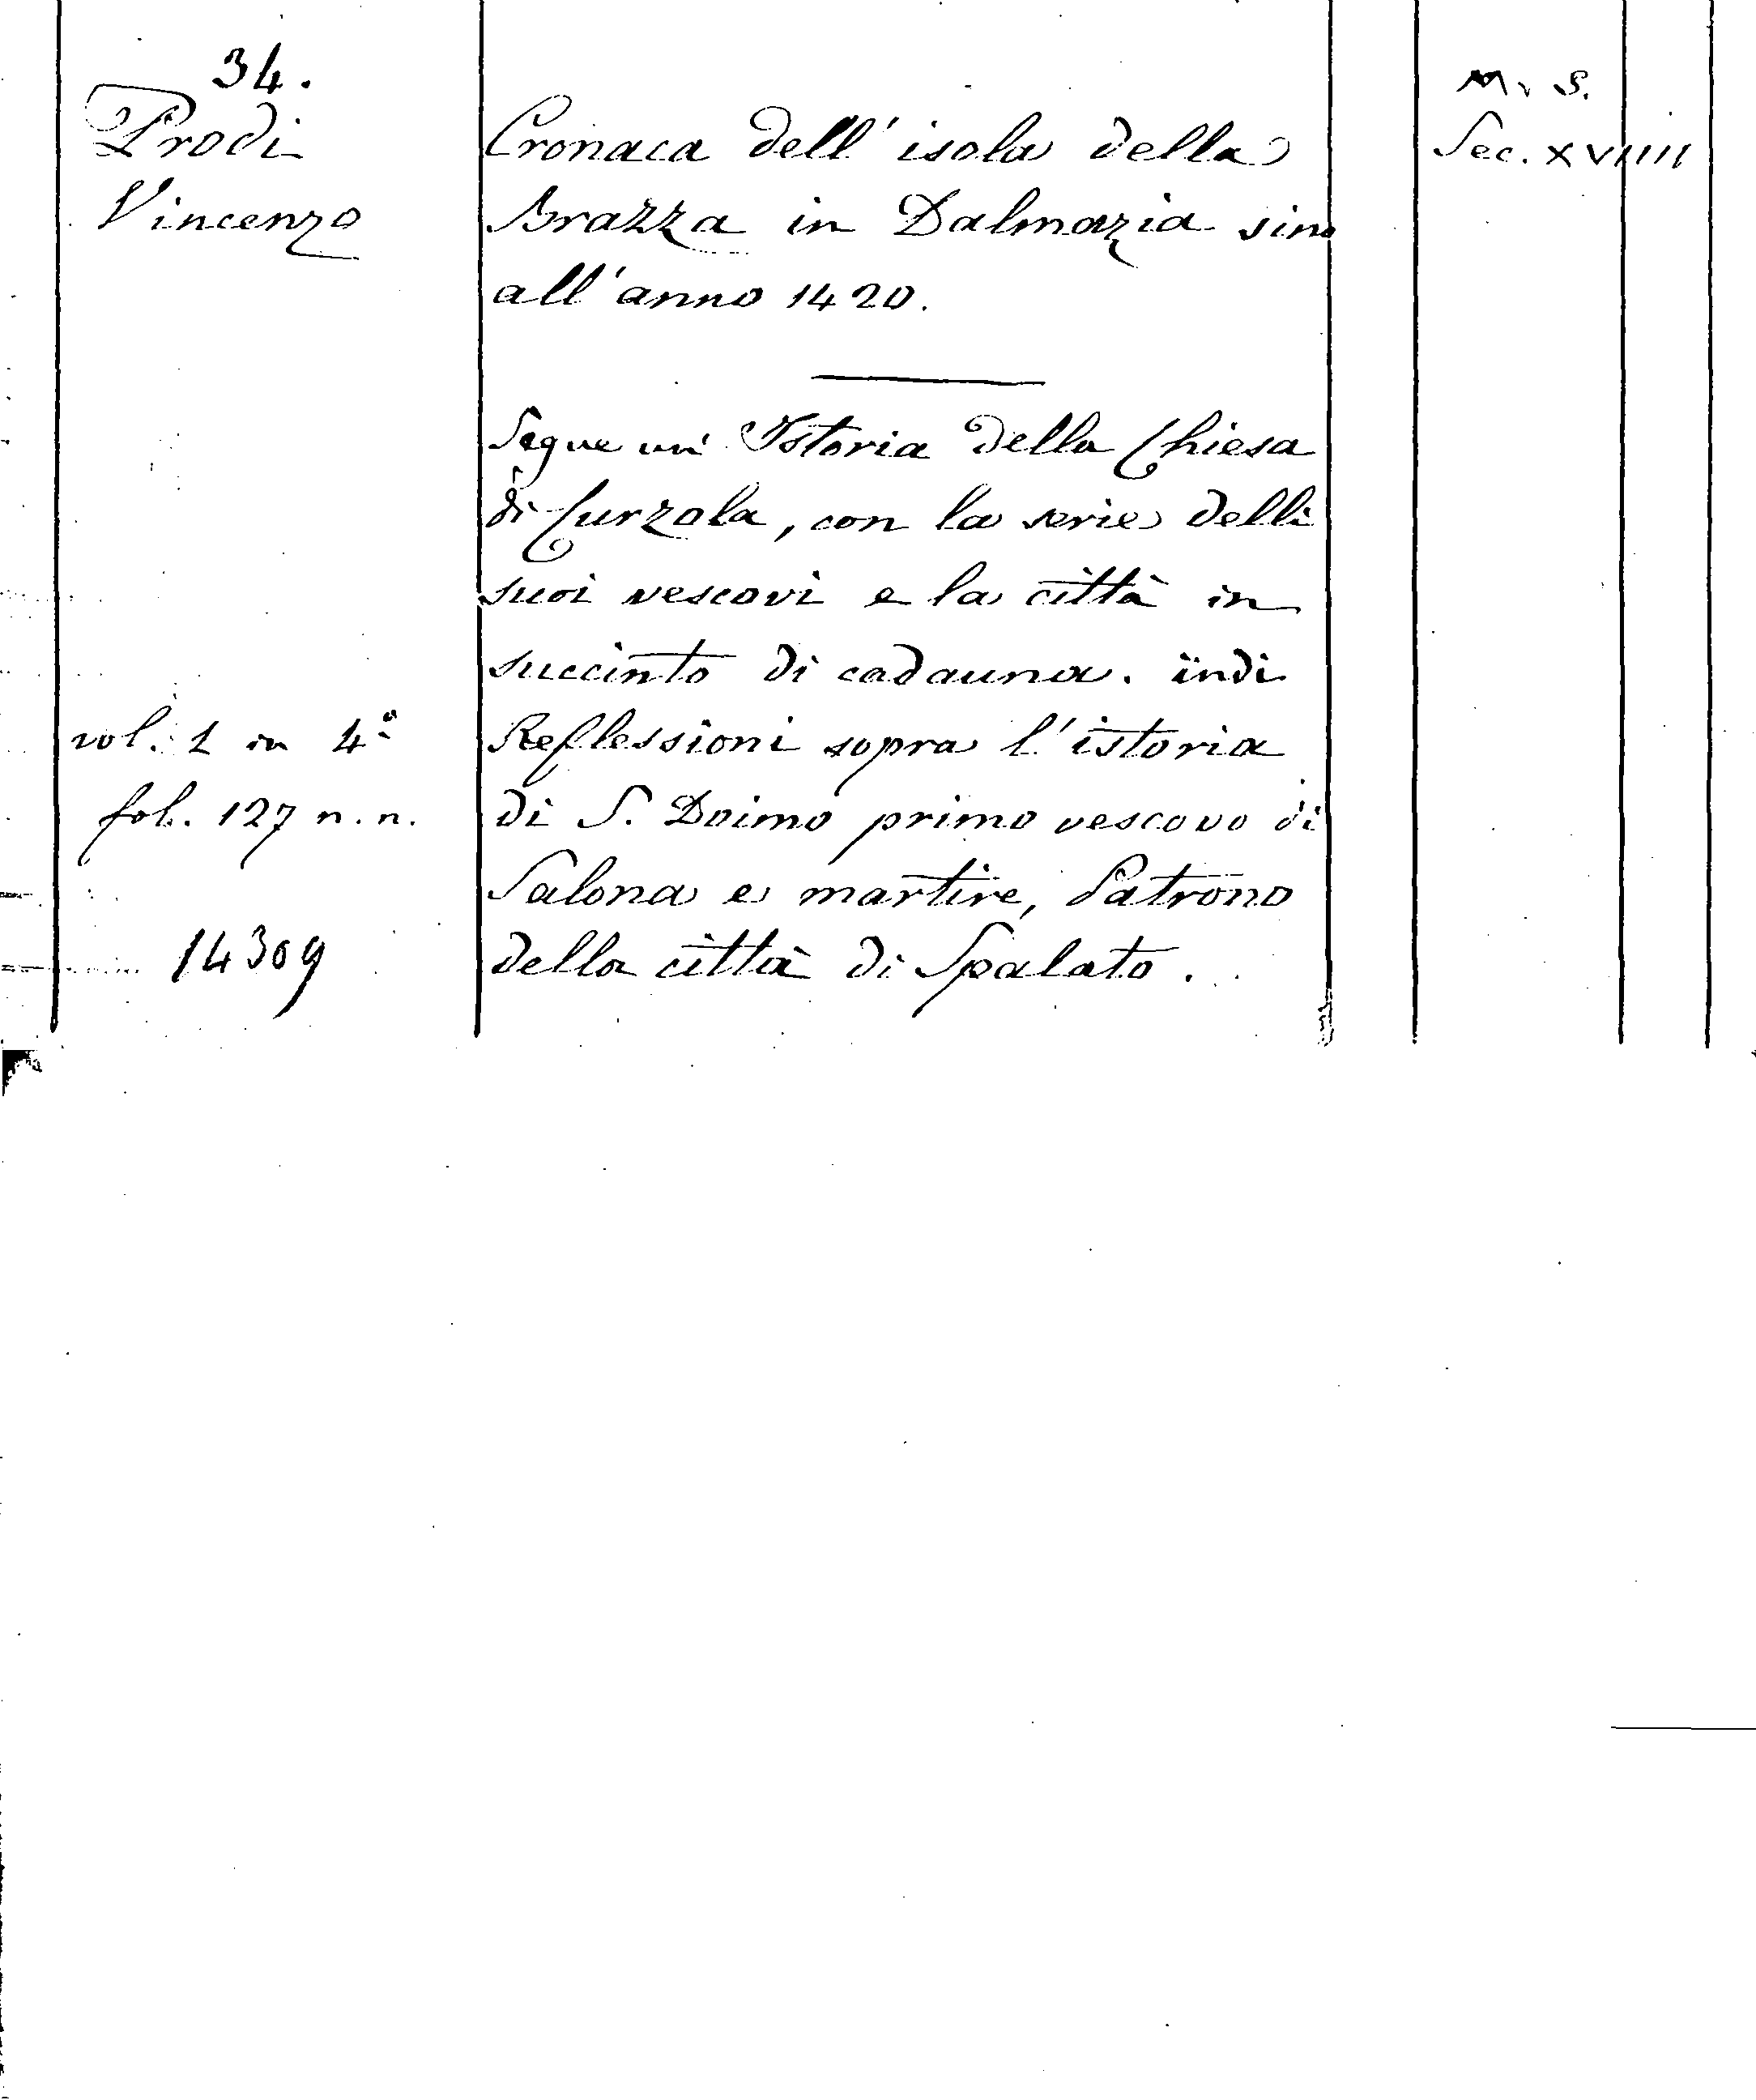 34.
Prodi
Vincenzo
vol. 1 in 4º
fol. 127 n. n.
14309
Cronaca dell' isola della
Brazza in Dalmazia sino
all' anno 1420.
Segue un' Istoria della Chiesa
di Curzola, con la serie delli
suoi vescovi e la città in
succinto di cadauna. indi
Reflessioni sopra l' istoria
di S. Doimo primo vescovo di
Salona e martire, Patrono
della città di Spalato.
M. S.
Sec. XVIIII